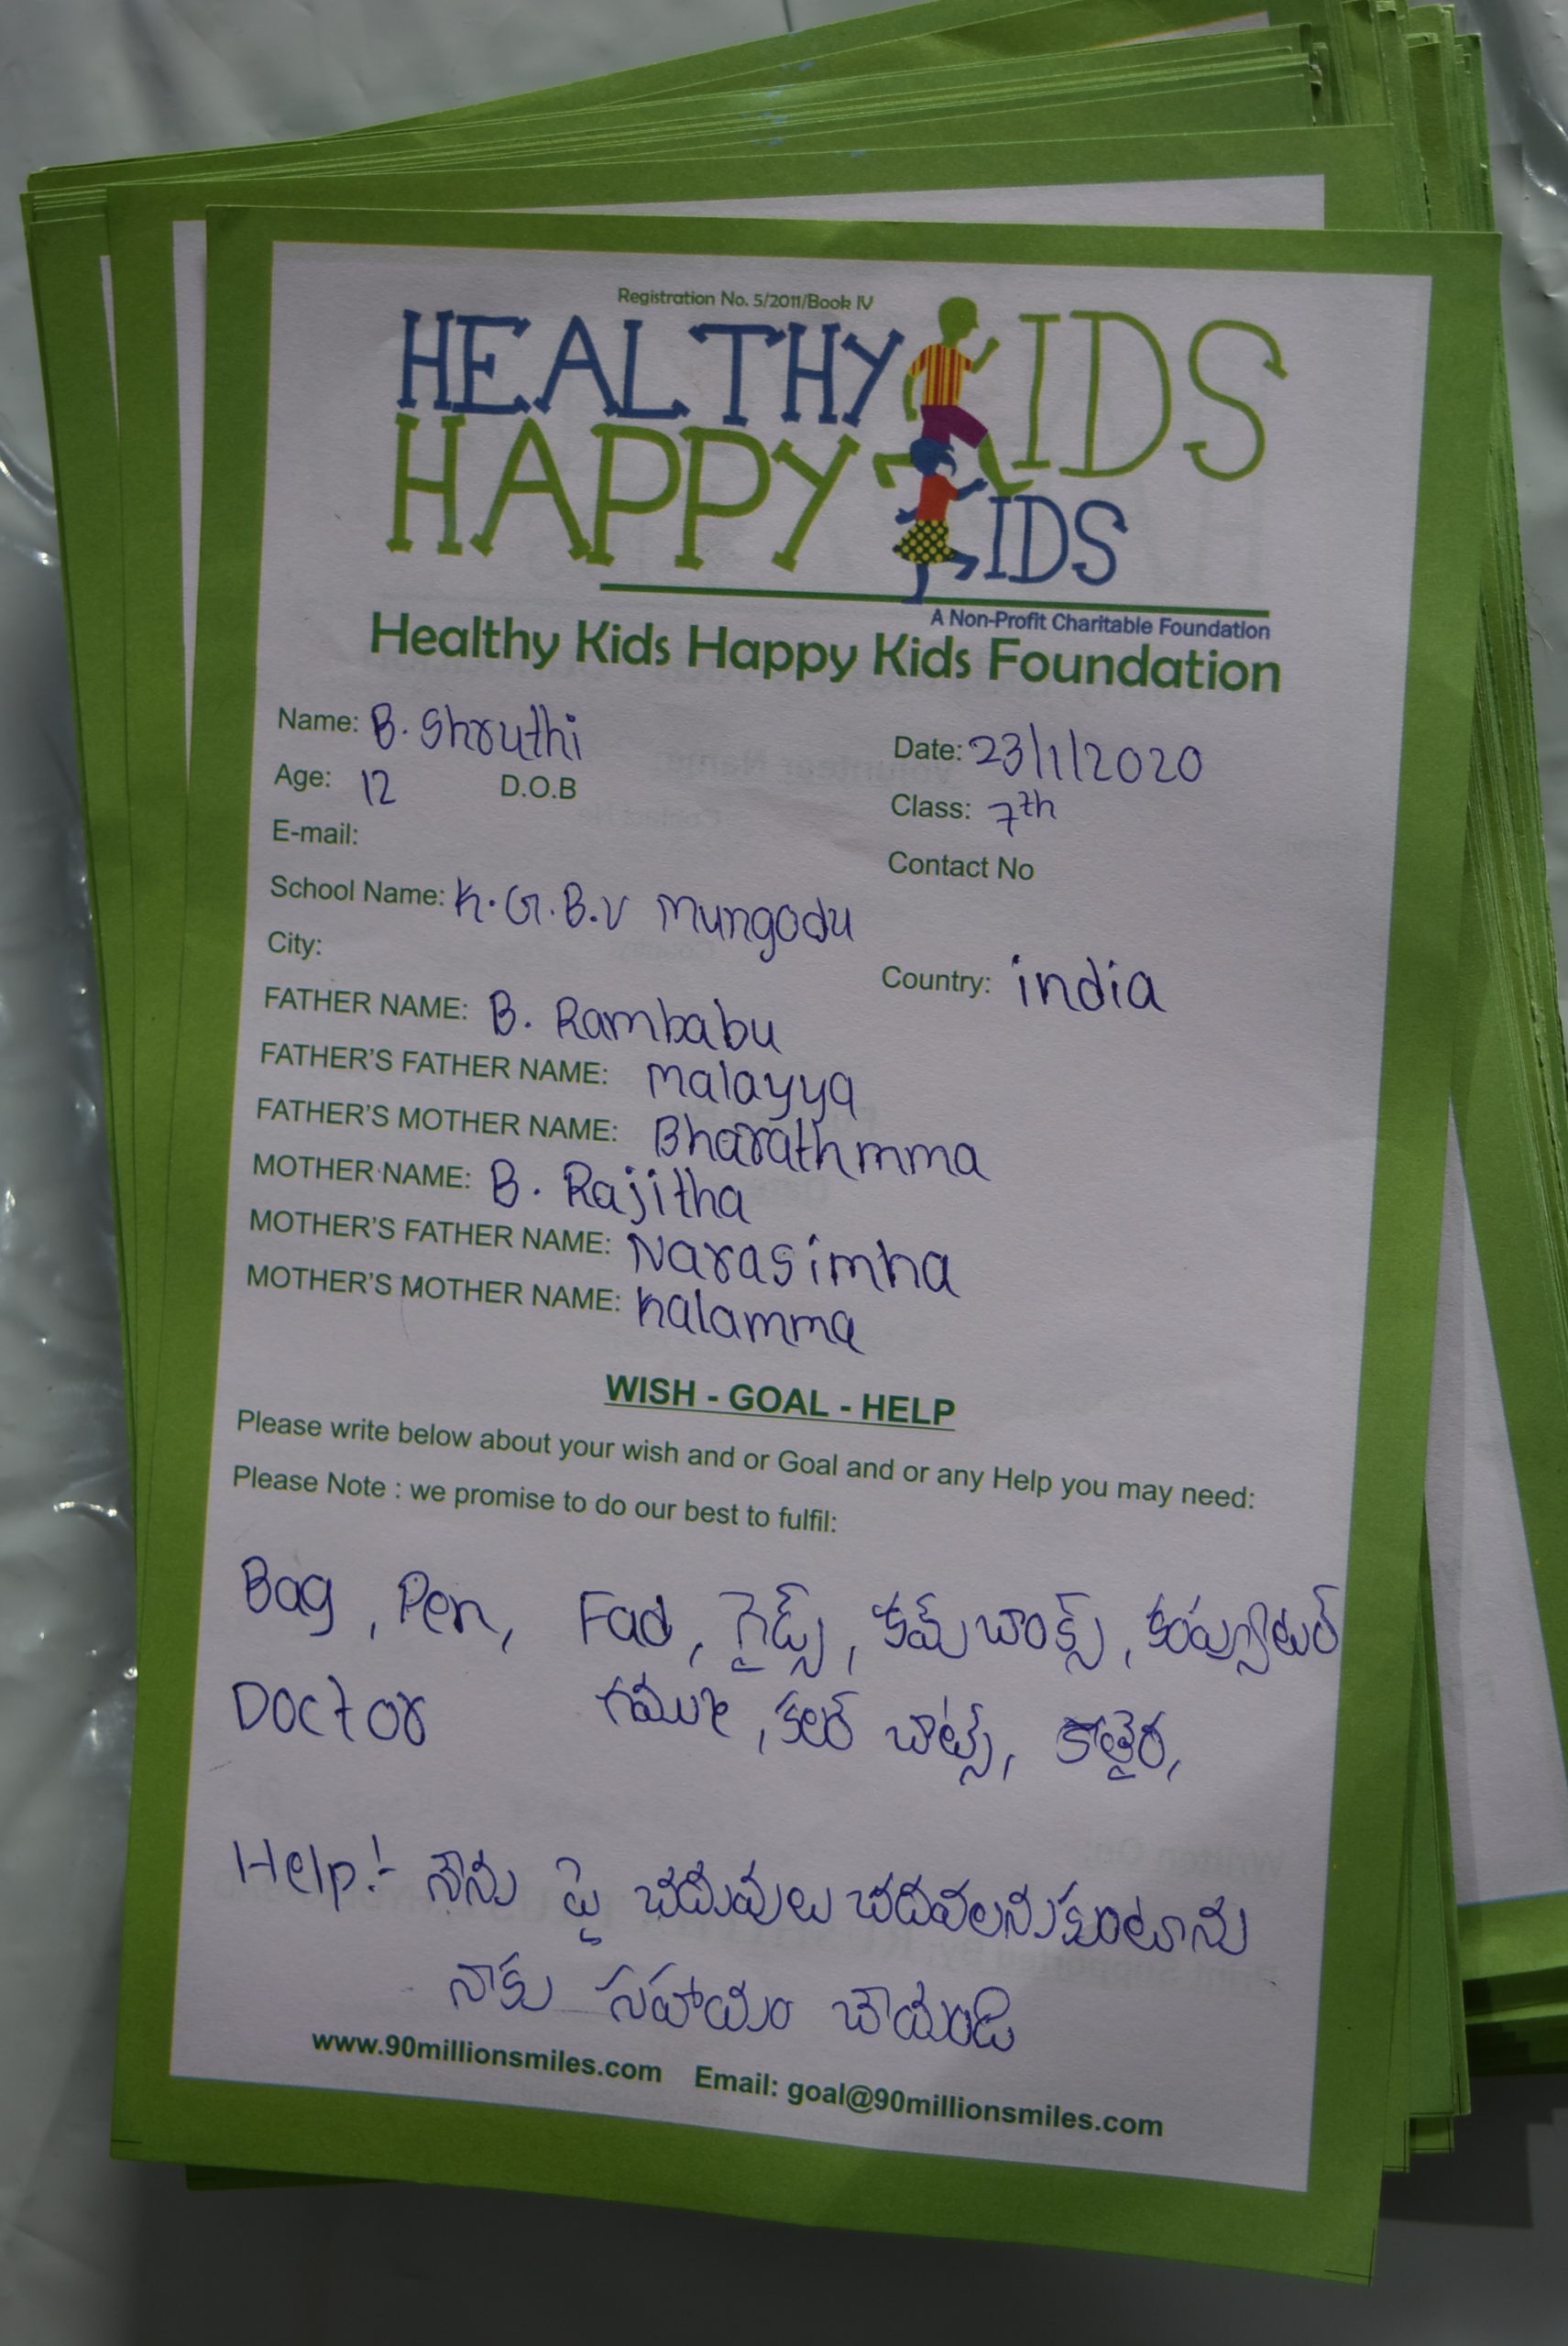 Registration No. 5/2011/Book IV
HEALTHY KIDS
HAPPY KIDS
A Non-Profit Charitable Foundation
Healthy Kids Happy Kids Foundation
Name: B. Shruthi Date: 23/1/2020
Age: 12 D.O.B Class: 7th
E-mail: Contact No
School Name: K.G.B.V Mungodu
City: Country: india
FATHER NAME: B. Rambabu
FATHER'S FATHER NAME: malayya
FATHER'S MOTHER NAME: Bharathmma
MOTHER NAME: B. Rajitha
MOTHER'S FATHER NAME: Narasimha
MOTHER'S MOTHER NAME: Kalamma
WISH - GOAL - HELP
Please write below about your wish and or Goal and or any Help you may need:
Please Note : we promise to do our best to fulfil:
Bag, Pen, Fad, గైడ్స్, కమ్ బాంక్స్, కంప్యూటర్
Doctor గముé, కలర్ చాట్స్,
Help:- నేను పై చదువులు చదవలనుకుంటూను
నాకు సహాయం చేయండి
www.90millionsmiles.com Email: goal@90millionsmiles.com